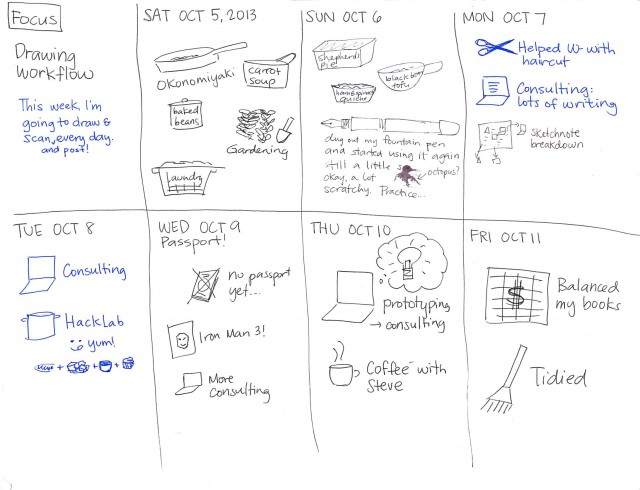 Focus
Drawing
workflow
This week, I'm
going to draw &
scan every day.
and post!
SAT OCT 5, 2013
Okonomiyaki
carrot
soup
baked
beans
Gardening
laundry
SUN OCT 6
shepherd's
pie
black bean
tofu
quiche
dug out my fountain pen
and started using it again
still a little s
octopus?
okay, a lot
scratchy. Practice...
MON OCT 7
Helped W- with
haircut
Consulting:
lots of writing
Sketchnote
breakdown
TUE OCT 8
Consulting
HackLab
yum!
WED OCT 9
Passport!
no passport
yet...
Iron Man 3!
More
Consulting
THU OCT 10
prototyping
→ consulting
Coffee with
Steve
FRI OCT 11
$
Balanced
my books
Tidied